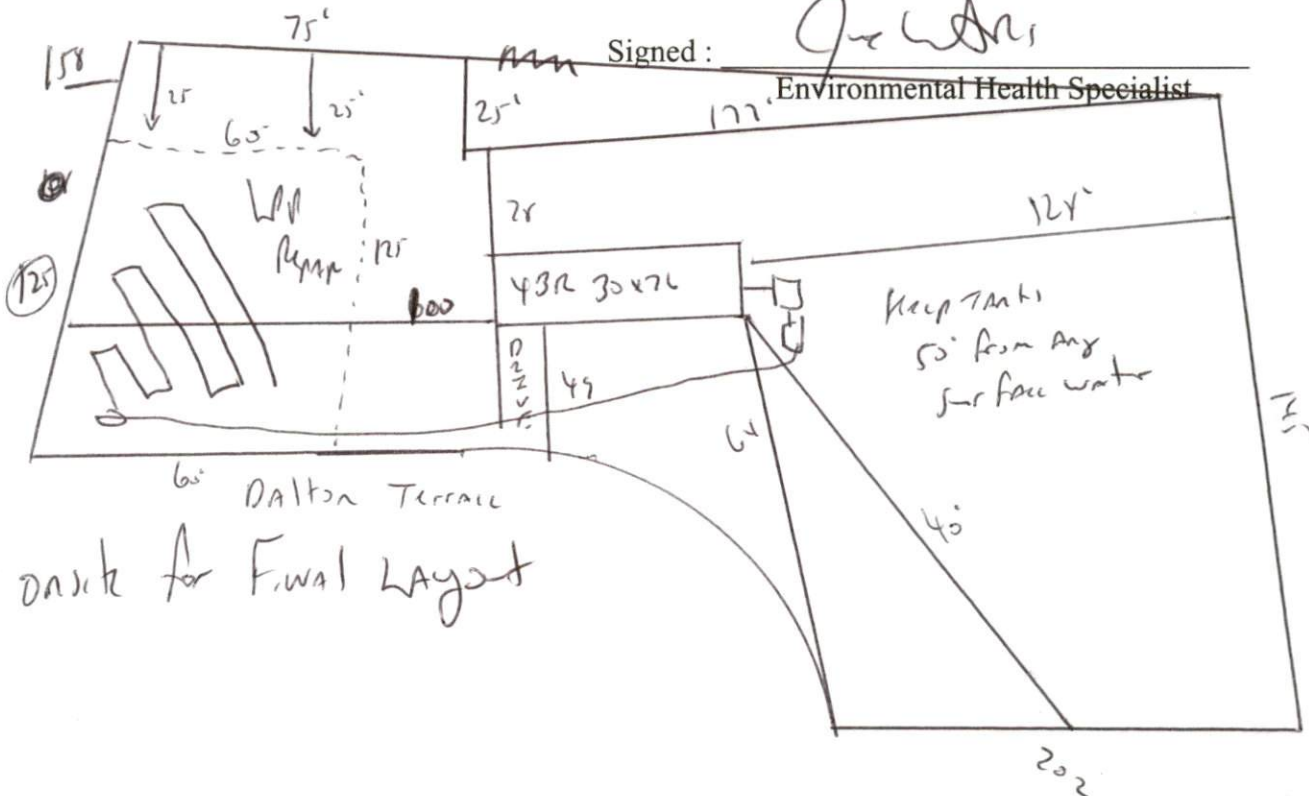 75'
Signed :
Environmental Health Specialist
158
25
25'
25'
177'
60'
28
128'
LPP
Repair
125
125
43R 30x76
Keep Tanks
50' from Any
surface water
DRIVE
49
40'
60'
Dalton Terrace
onsite for Final Layout
202